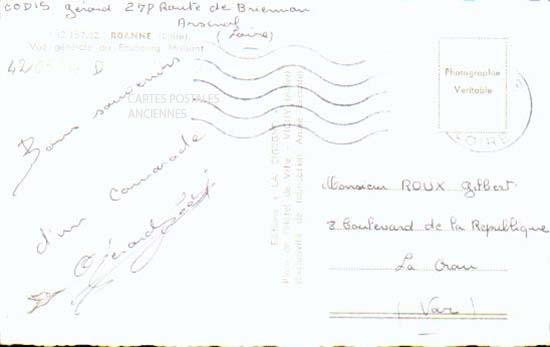 CODIS Gérard 27P Route de Briennon
Arsenal
(Loire)
42.187.02 - ROANNE (Loire)
Vue générale du Faubourg Mulsant
42
D
CARTES POSTALES
ANCIENNES
Bons souvenirs
d'un camarade
Gérard
Editions " LA CIGOGNE "
Place de l'Hôtel de Ville - VICHY
Photographie
Véritable
LOIRE
Monsieur ROUX Gilbert
8 Boulevard de la République
La Crau
(Var)